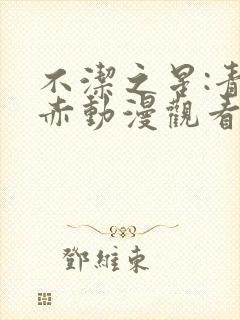 不潔之昷:青
赤動漫觀看
鄧維東